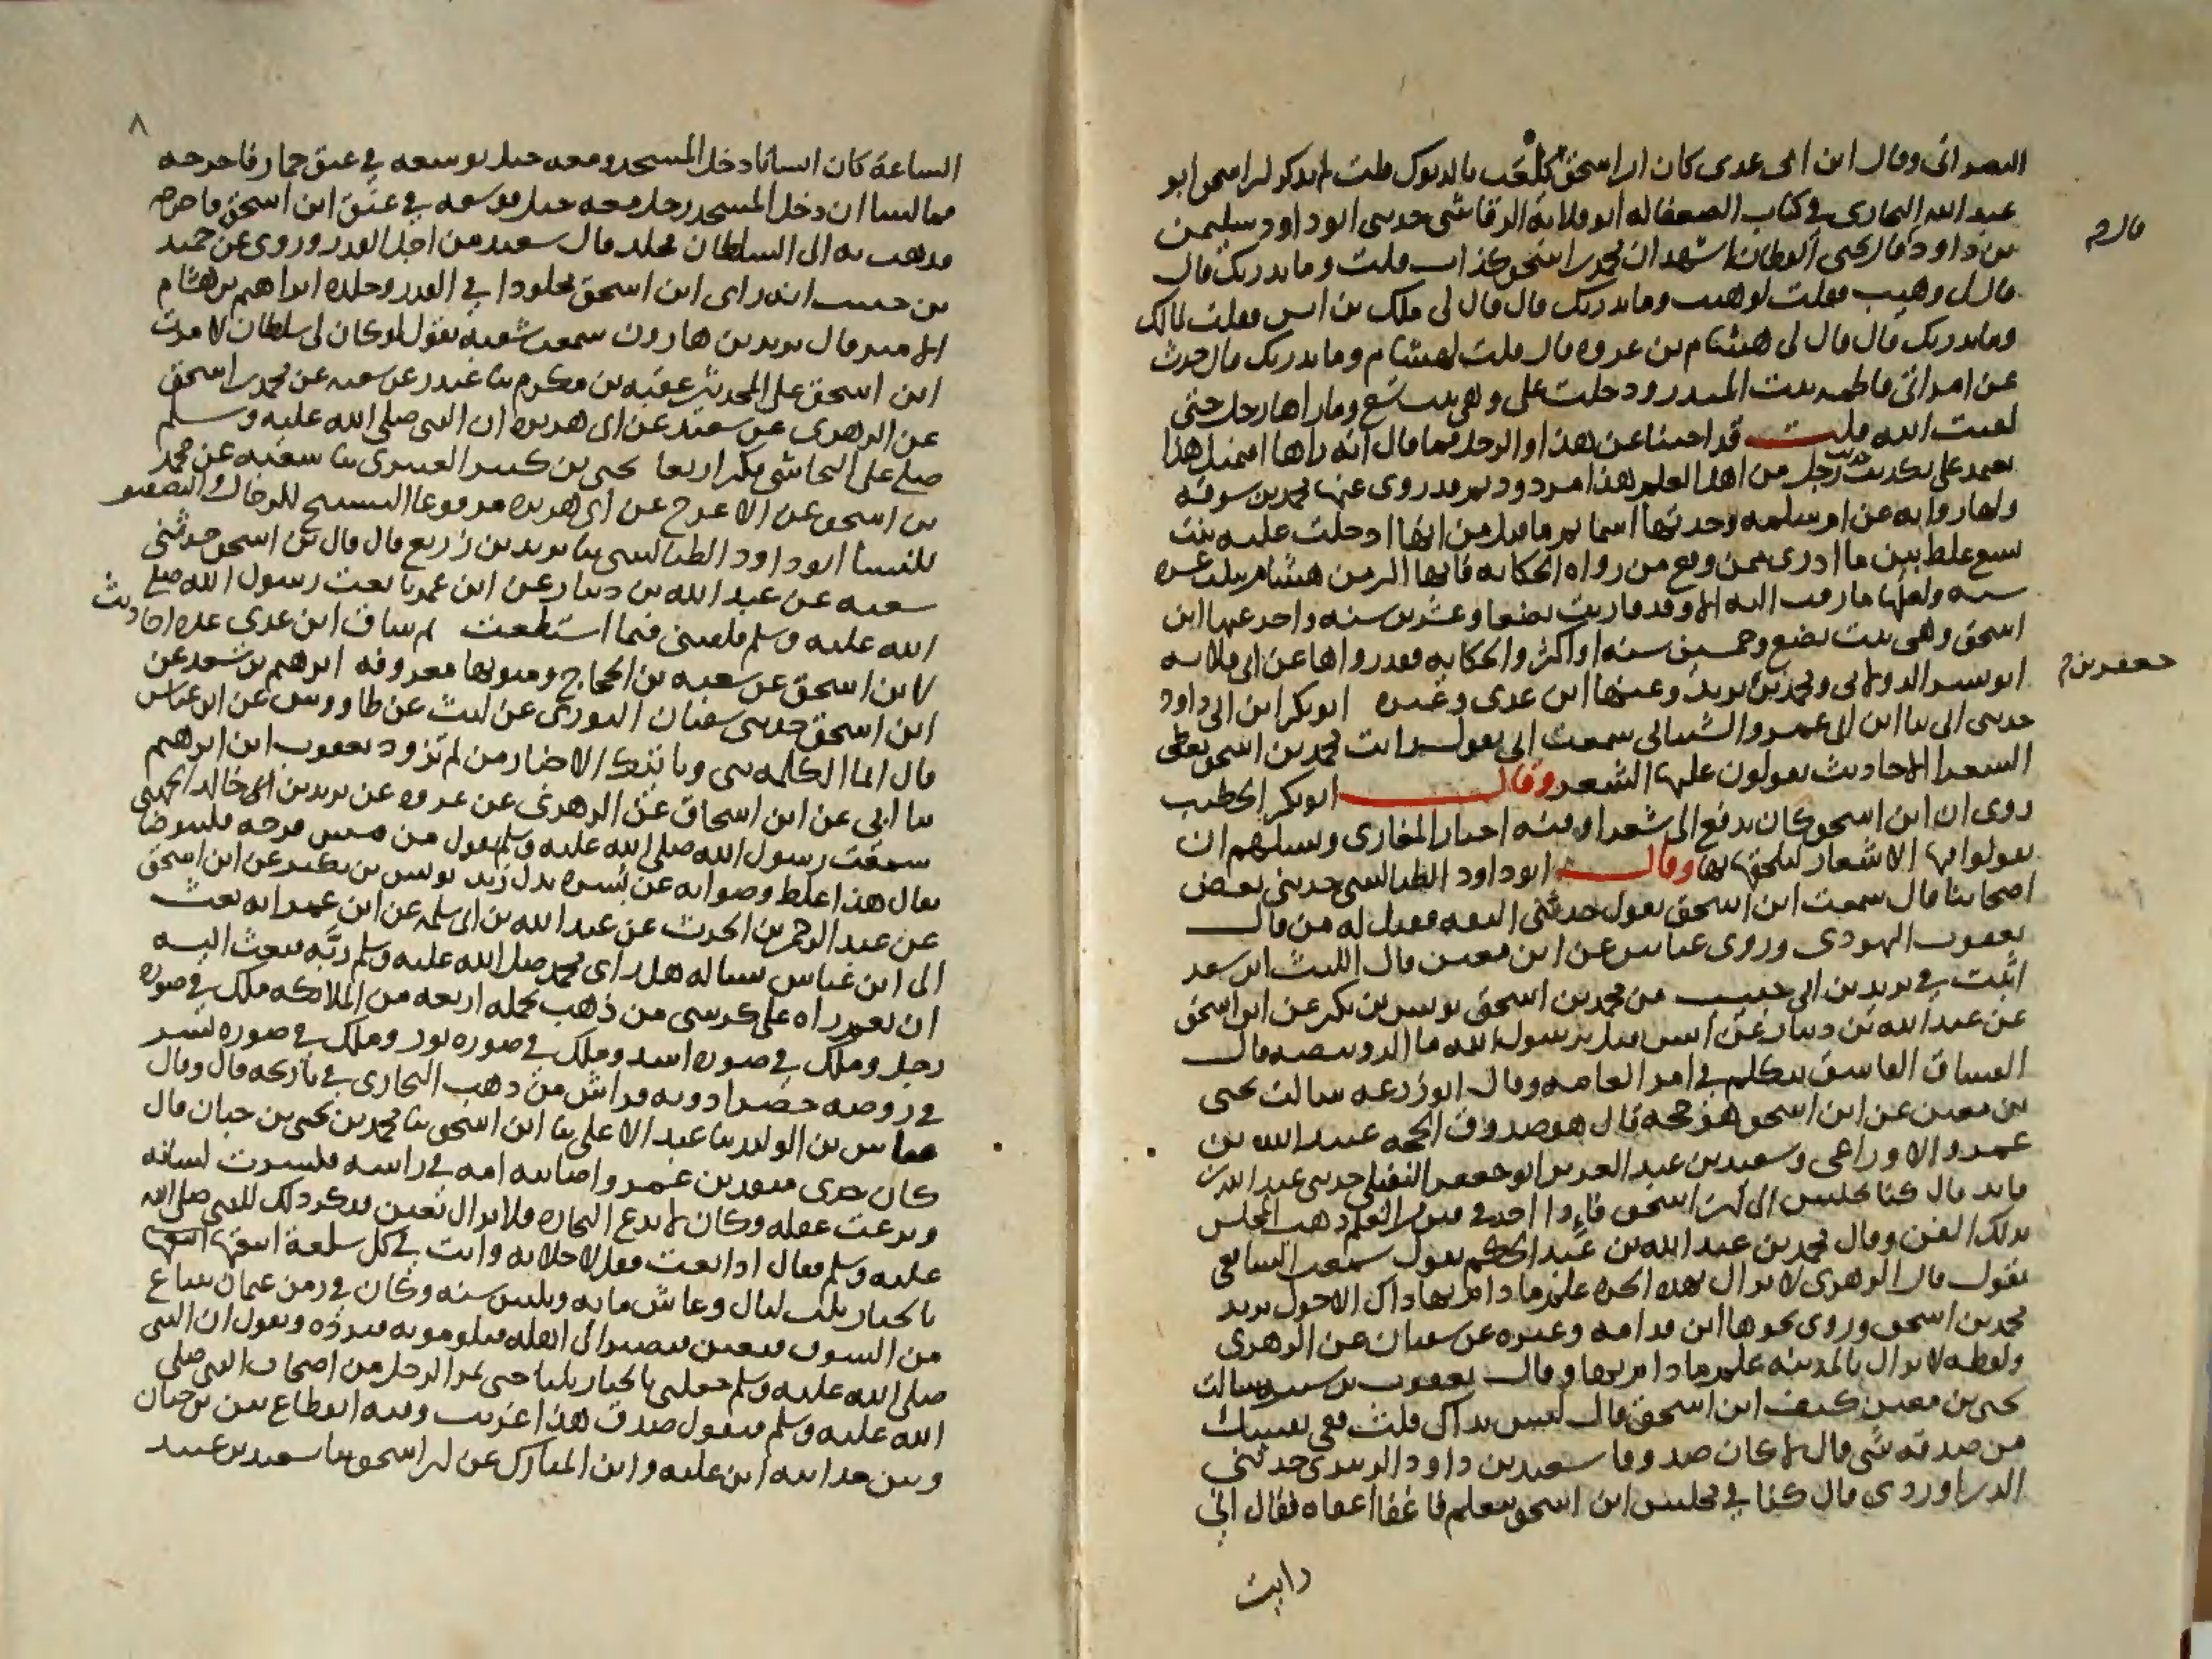 البصراني وقال ابن ابي عدي كان ابن اسحق يلعب بالديوك قلت لم يذكر ابن اسحق ابو
عبد الله البخاري في كتاب الضعفا له ابو قلابة الرقاشي حدثني ابو داود سليمن
بن داود قال يحيى القطان اشهد ان محمد بن اسحق كذاب قلت وما يدريك قال
قال لي وهيب فقلت لوهيب وما يدريك قال قال لي ملك بن انس فقلت لمالك
وما يدريك قال قال لي هشام بن عروه قال قلت لهشام وما يدريك قال حدث
عن امراتي فاطمه بنت المنذر ودخلت علي وهي بنت تسع وما راها رجل حتى
لقيت الله قلت قد اجبنا عن هذا والرجل فما قال انه راها افبمثل هذا
يعتمد على تكذيب رجل من اهل العلم هذا مردود ثم قد روى عنها محمد بن سوقه
ولها روايه عن ام سلمه وجدتها اسما ثم ما قيل من انها ادخلت عليه بنت
تسع غلط بين ما ادري ممن وقع من رواه الحكايه فانها اكبر من هشام بثلث عشره
سنه ولعلها ما زفت اليه الا وقد قاربت بضعا وعشرين سنه واخذ عنها ابن
اسحق وهي بنت بضع وخمسين سنه او اكثر والحكايه فقد رواها عن ابي قلابه
ابو بشر الدولابي ومحمد بن جعفر بن يزيد وعنهما ابن عدي وغيره ابو بكر ابن ابي داود
حدثني ابي ثنا ابن ابي عمرو الشيباني سمعت ابي يقول رايت محمد بن اسحق يعطي
الشعرا الاحاديث يقولون عليها الشعر وقال ابو بكر الخطيب
روى ان ابن اسحق كان يدفع الى شعرا وقته اخبار المغازي ويسلهم ان
يقولوا فيها الاشعار ليلحقها بها وقال ابو داود الطيالسي حدثني بعض
اصحابنا قال سمعت ابن اسحق يقول حدثني الثقه فقيل له من قال
يعقوب اليهودي وروى عباس عن ابن معين قال الليث بن سعد
اثبت في يزيد بن ابي حبيب من محمد بن اسحق يونس بن بكير عن ابن اسحق
عن عبد الله بن دينار عن انس قيل يا رسول الله ما الرويبضه قال
الفساق الفاسق يتكلم في امر العامه وقال ابو زرعه سالت يحيى
بن معين عن ابن اسحق هو حجه قال هو صدوق الحجه عبيد الله بن
عمر والاوزاعي وسعيد بن عبد العزيز ابو جعفر النفيلي حدثني عبد الله بن
فايد قال كنا نجلس الى ابن اسحق فاذا اخذ في فن من العلم ذهب المجلس
بذلك الفن وقال محمد بن عبد الله بن عبد الحكم يقول سمعت الشافعي
يقول قال الزهري لا يزال بهذه الحره علم ما دام بها ذاك الاحول يريد
محمد بن اسحق وروى نحوها ابن قدامه وغيره عن سفيان عن الزهري
ولفظه لا يزال بالمدينه علم ما دام بها وقال يعقوب بن شيبه سالت
يحيى بن معين كيف ابن اسحق قال ليس بذاك قلت ففي نفسك
من صدقه شي قال لا كان صدوقا سعيد بن داود الزبيري حدثني
الدراوردي قال كنا في مجلس ابن اسحق نتعلم فاغفا اغفاه فقال اني
رايت
قال م
جعفر بن م
٨
الساعة كان انسانا دخل المسجد ومعه حبل فوضعه في عنق حمار فاخرجه
فما لبثنا ان دخل المسجد رجل معه حبل فوضعه في عنق ابن اسحق فاخرجه
فذهب به الى السلطان فجلد قال سعيد من اجل القدر وروى عن حميد
بن حبيب انه راى ابن اسحق مجلودا في القدر وجلده ابراهيم بن هشام
الامير قال يزيد بن هارون سمعت شعبه يقول لو كان لي سلطان لامرت
ابن اسحق على المحدثين عقبه بن مكرم ثنا غندر عن شعبه عن محمد بن اسحق
عن الزهري عن سعيد عن ابي هريره ان النبي صلى الله عليه وسلم
صلى على النجاشي فكبر اربعا يحيى بن كثير العنبري ثنا شعبه عن محمد
بن اسحق عن الاعرج عن ابي هريره مرفوعا التسبيح للرجال والتصفيق
للنسا ابو داود الطيالسي ثنا يزيد بن زريع قال قال ابن اسحق حدثني
شعبه عن عبد الله بن دينار عن ابن عمر بايعت رسول الله صلى
الله عليه وسلم فلقنني فيما استطعت ثم ساق ابن عدي عده احاديث
لابن اسحق عن شعبه بن الحجاج ومتونها معروفه ابرهيم بن سعد عن
ابن اسحق حدثني سفيان الثوري عن ليث عن طاووس عن ابن عباس
قال انما الكلمه ... من لم تزود يعقوب ابن ابرهيم
ثنا ابي عن ابن اسحاق عن الزهري عن عروه عن يزيد بن خالد الجهني
سمعت رسول الله صلى الله عليه وسلم يقول من مس فرجه فليتوضا
يقال هذا غلط وصوابه عن بسره بدل زيد يونس بن بكير عن ابن اسحق
عن عبد الرحمن بن الحرث عن عبد الله بن ابي سلمه عن ابن عمر انه بعث
الى ابن عباس يساله هل راى محمد صلى الله عليه وسلم ربه فبعث اليه
ان نعم راه على كرسي من ذهب تحمله اربعه من الملائكه ملك في صوره
رجل وملك في صوره اسد وملك في صوره ثور وملك في صوره نسر
في روضه خضرا دونه فراش من ذهب البخاري في تاريخه قال وقال
عباس بن الوليد ثنا عبد الاعلى ثنا ابن اسحق ثنا محمد بن يحيى بن حبان قال
كان جدي منقذ بن عمرو واصابته امه في راسه فكسرت لسانه
ونزعت عقله وكان لا يدع التجاره فلا يزال يغبن فذكر ذلك للنبي صلى الله
عليه وسلم فقال اذا بعت فقل لا خلابه وانت في كل سلعة ابتعتها
بالخيار ثلث ليال وعاش مايه وثلثين سنه وكان في زمن عثمان يبتاع
من السوق فيغبن فيصير الى اهله فيلومونه فيرده ويقول ان النبي
صلى الله عليه وسلم جعلني بالخيار ثلثا حتى يمر الرجل من اصحاب النبي صلى
الله عليه وسلم فيقول صدق هذا غريب وفيه انقطاع بين بن حبان
وبين جد ابيه ابن عليه وابن المبارك عن ابن اسحق ثنا سعيد بن عبيد